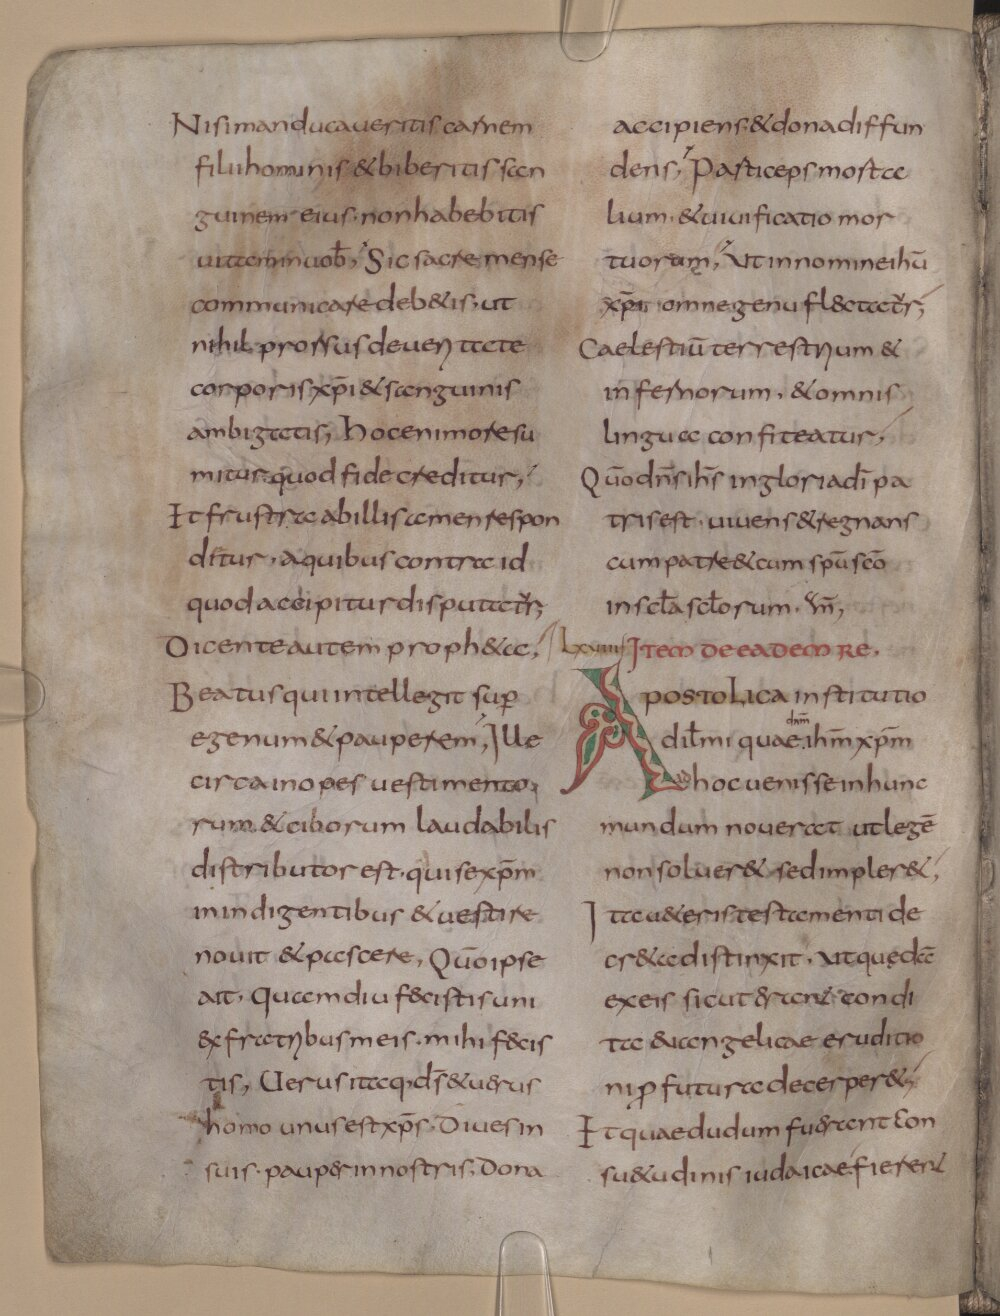 Nisi manducaueritis carnem
filii hominis & biberitis san
guinem eius· non habebitis
uitam in uob̄; Sic sacre mense
communicare deb&is· ut
nihil prorsus de ueritate
corporis xp̄i & sanguinis
ambigatis; Hoc enim ore su
mitur quod fide creditur;
Et frustra ab illis amen respon
ditur· a quibus contra id
quod accipitur disputat̄r;
Dicente autem proph&a;
Beatus qui intellegit sup̲
egenum & pauperem; Ille
circa inopes uestimento
rum & ciborum laudabilis
distributor est· qui se xp̄m
in indigentibus & uestire
nouit & pascere, Qūo ipse
ait· Quamdiu fecistis uni
ex fratribus meis· mihi fecis
tis; Uerus itaq· d̄s & uerus
homo unus est xp̄s· Diues in
suis· pauper in nostris; Dona
accipiens & dona diffun
dens; Particeps morta
lium· & uiuificatio mor
tuorum; Ut in nomine ih̄u
xp̄i omne genu flectat̄r;
Caelestiū terrestrium &
infernorum, & omnis
lingua confiteatur;
Qūo dn̄s ih̄s in gloria dī pa
tris est· uiuens & regnans
cum patre & cum sp̄u scō
in scl̄a scl̄orum· am̄;
Lxxiiii Item de eadem re.
Apostolica institutio
dil̄mi quae dnm̄ ih̄m xp̄m
ad hoc uenisse in hunc
mundum nouerat ut legē
non solueret sed impleret;
Ita ueteris testamenti de
creta distinxit· ut quędā
ex eis sicut erant condi
ta euangelicae eruditio
ni p̲ futura decerperet;
Et quae dudum fuerant con
suetudinis iudaicae· fierent